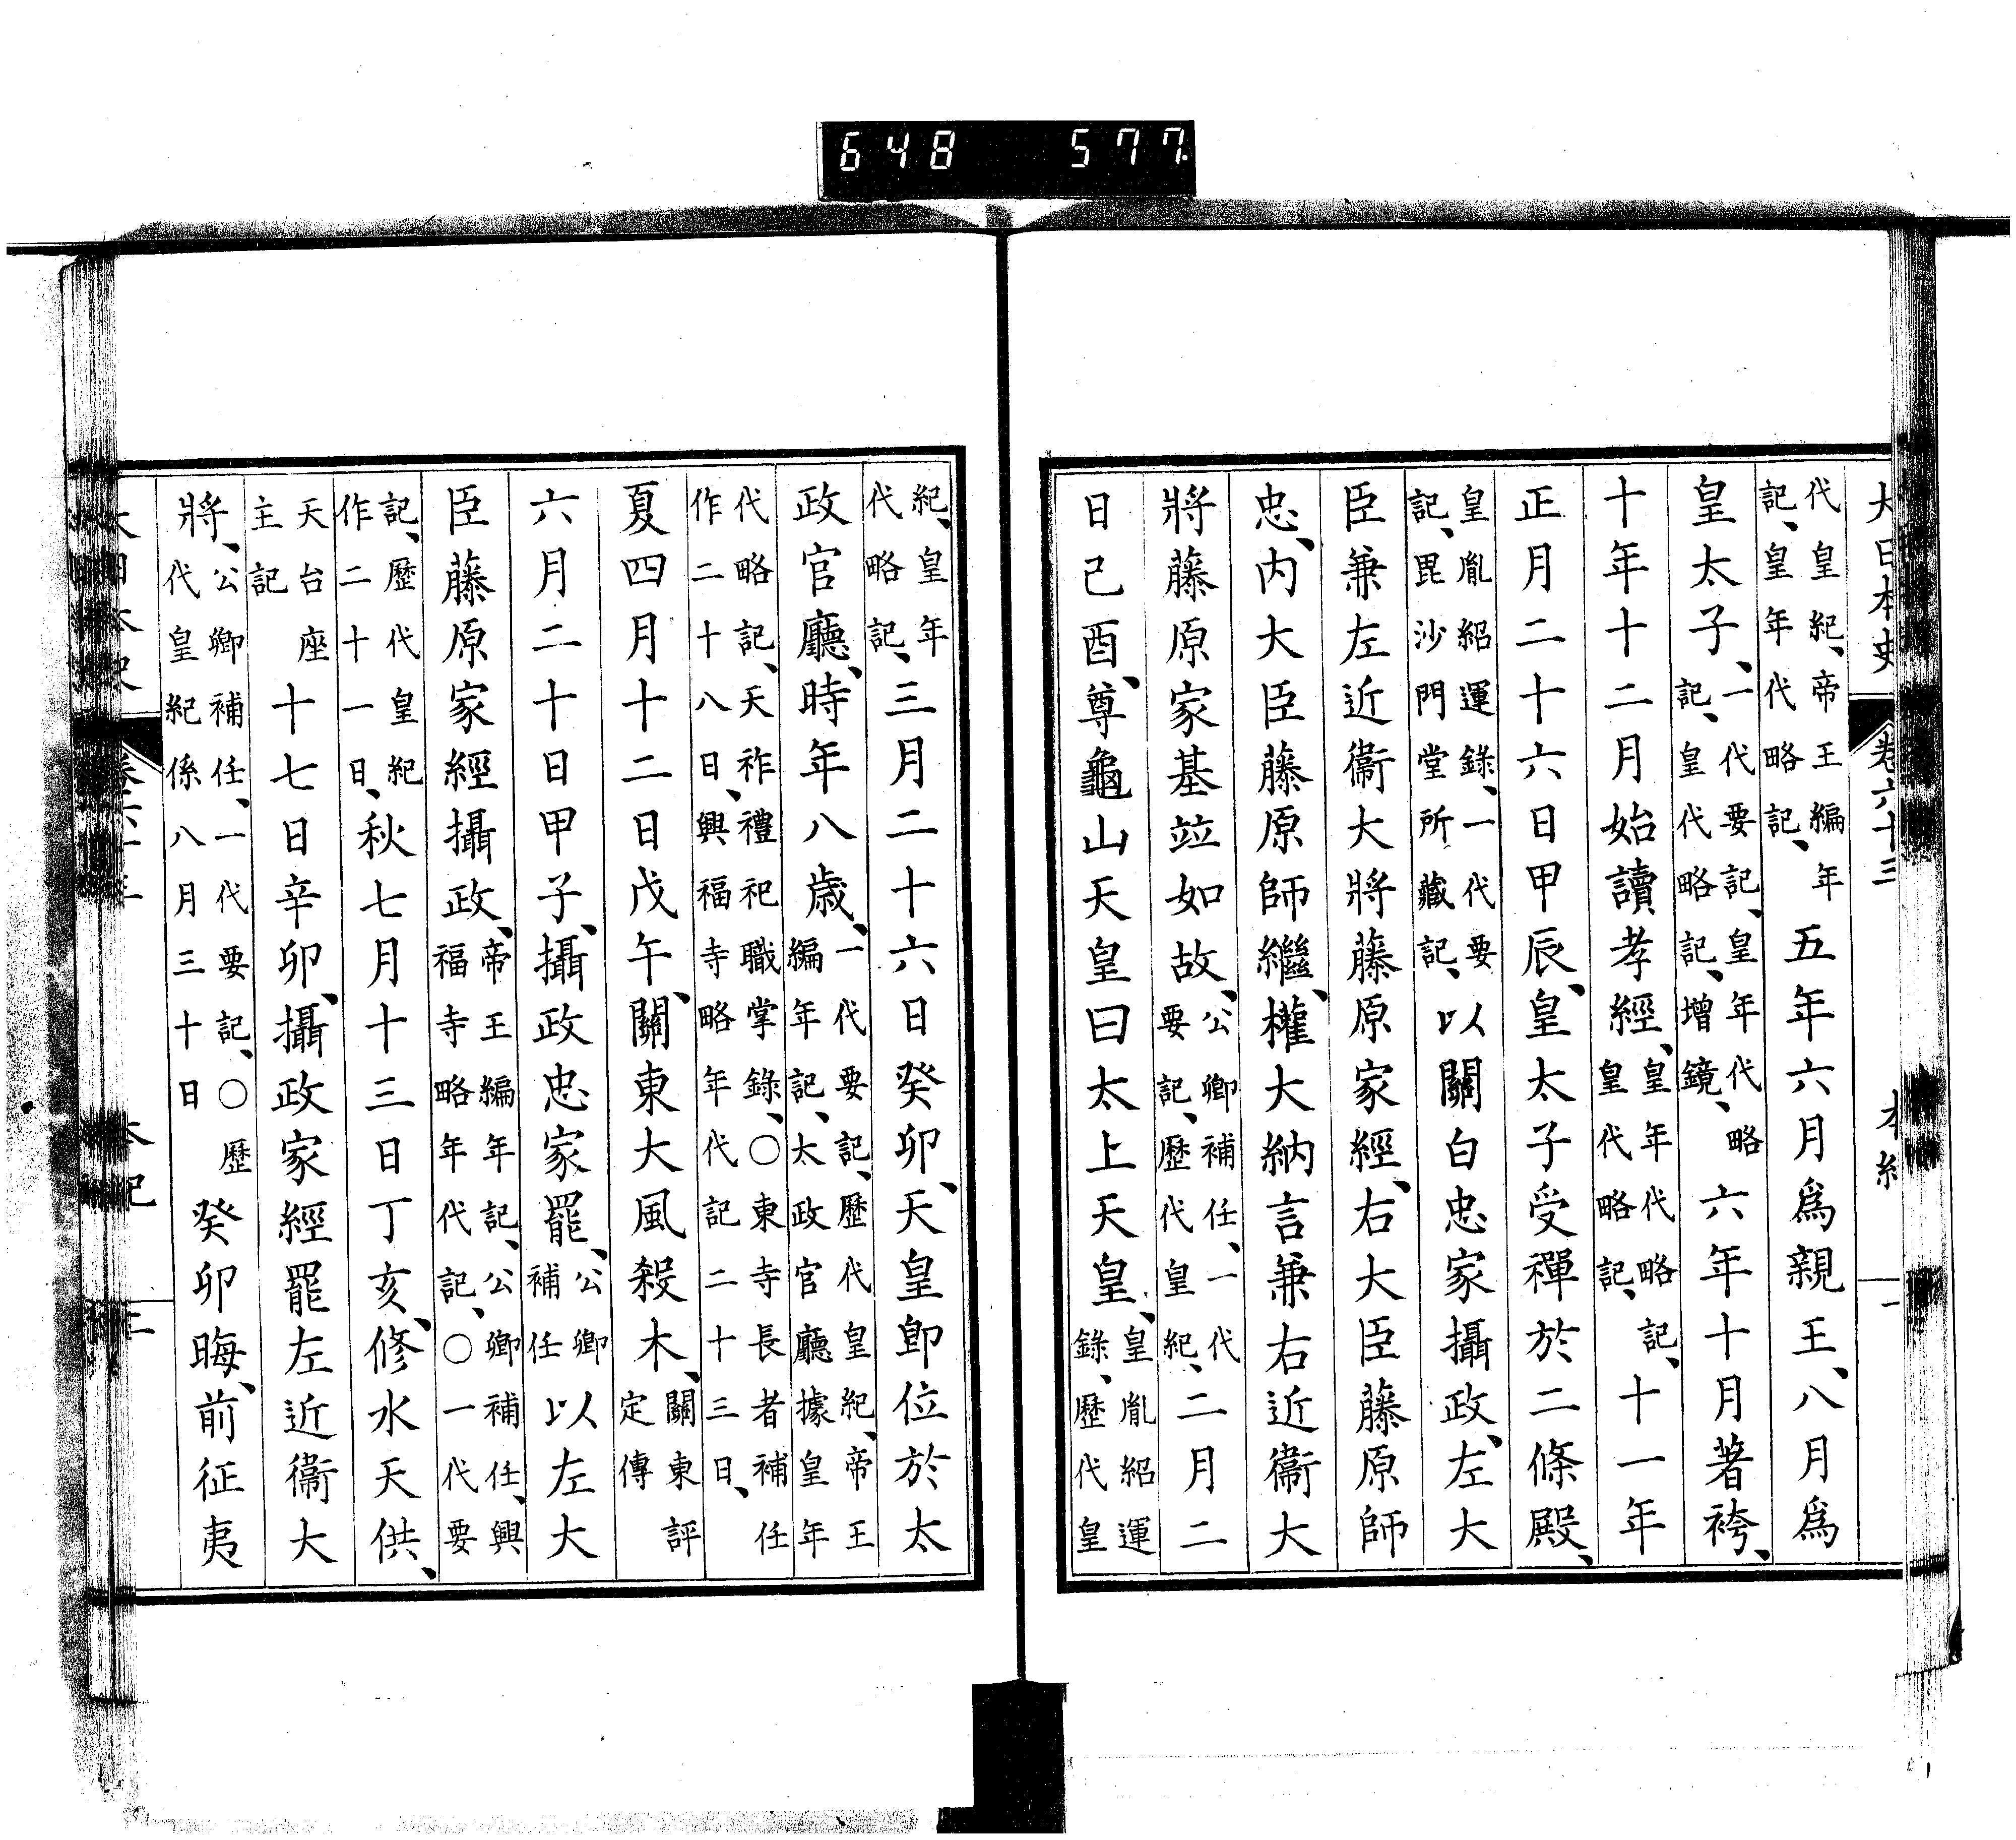 648 577
大日本史 卷六十三 本紀 一
代皇紀、帝王編年
記、皇年代略記、五年六月爲親王、八月爲
皇太子、一代要記、皇年代略
記、皇代略記、增鏡、六年十月著袴、
十年十二月始讀孝經、皇年代略記、
皇代略記、十一年
正月二十六日甲辰、皇太子受禪於二條殿、
皇胤紹運錄、一代要
記、毘沙門堂所藏記、以關白忠家攝政、左大
臣兼左近衞大將藤原家經、右大臣藤原師
忠、内大臣藤原師繼、權大納言兼右近衞大
將藤原家基竝如故、公卿補任、一代
要記、歷代皇紀、二月二
日己酉、尊龜山天皇曰太上天皇、皇胤紹運
錄、歷代皇
紀、皇年
代略記、三月二十六日癸卯、天皇卽位於太
政官廳、時年八歲、一代要記、歷代皇紀、帝王
編年記、太政官廳據皇年
代略記、天祚禮祀職掌錄、○東寺長者補任
作二十八日、興福寺略年代記二十三日、
夏四月十二日戊午、關東大風殺木、關東評
定傳
六月二十日甲子、攝政忠家罷、公卿
補任以左大
臣藤原家經攝政、帝王編年記、公卿補任、興
福寺略年代記、○一代要
記、歷代皇紀
作二十一日、秋七月十三日丁亥、修水天供、
天台座
主記十七日辛卯、攝政家經罷左近衞大
將、公卿補任、一代要記、○歷
代皇紀係八月三十日癸卯晦、前征夷
本紀